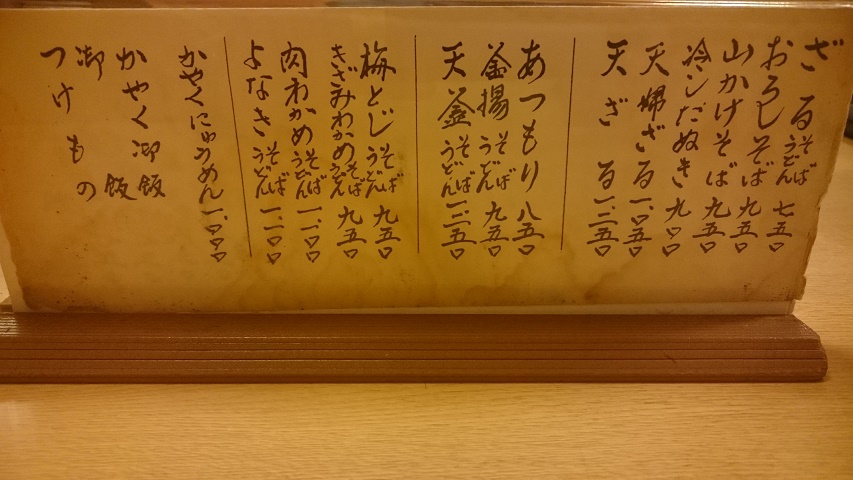 ざる そば うどん 七五〇
おろしそば 九五〇
山かけそば 九五〇
冷しだぬき 九〇〇
天婦ざる 一、〇五〇
天ざる 一、三五〇
あつもり 八五〇
釜揚 そば うどん 九五〇
天釜 そば うどん 一、三五〇
梅とじ そば うどん 九五〇
きざみわかめ そば うどん 九五〇
肉わかめ そば うどん 一、一〇〇
よなき そば うどん 一、一〇〇
かやくにゅうめん 一、〇〇〇
かやく御飯
御飯
つけもの